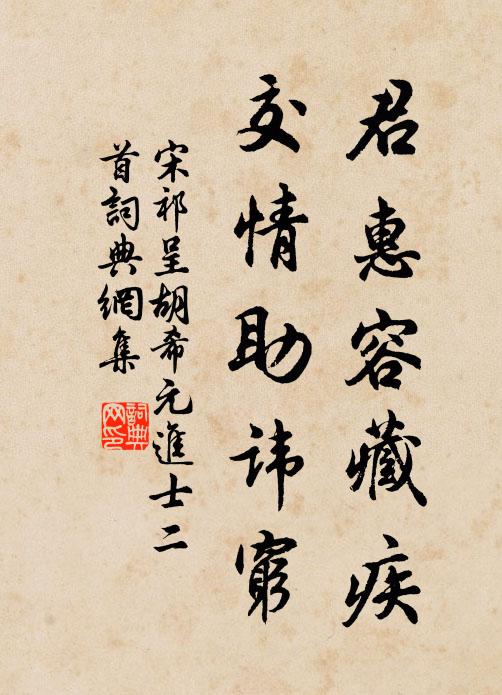 君惠容藏疾
交情助讳窮
宋祁呈胡希元進士二
首詞典網集
詞典
网印